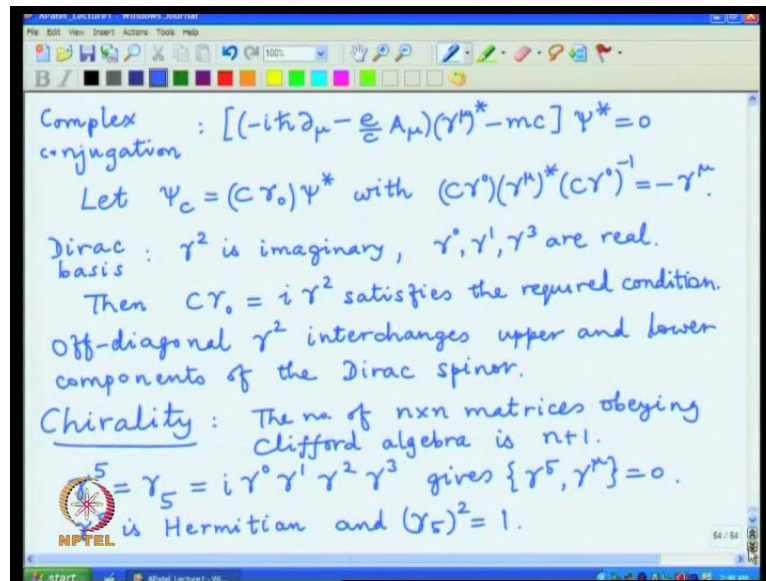 APatel_Lecture1 - Windows Journal
File Edit View Insert Actions Tools Help
100%
B I
Complex conjugation : [(-iħ∂μ - e/c Aμ)(γ^μ)* - mc] Ψ* = 0
Let Ψc = (Cγ₀)Ψ* with (Cγ⁰)(γ^μ)*(Cγ⁰)⁻¹ = -γ^μ.
Dirac basis : γ² is imaginary, γ⁰, γ¹, γ³ are real.
Then Cγ₀ = iγ² satisfies the required condition.
Off-diagonal γ² interchanges upper and lower
components of the Dirac spinor.
Chirality : The no. of nxn matrices obeying
Clifford algebra is n+1.
γ⁵ = γ₅ = iγ⁰γ¹γ²γ³ gives {γ⁵, γ^μ} = 0.
is Hermitian and (γ₅)² = 1.
NPTEL
64 / 64
start
APatel_Lecture1 - Wi...